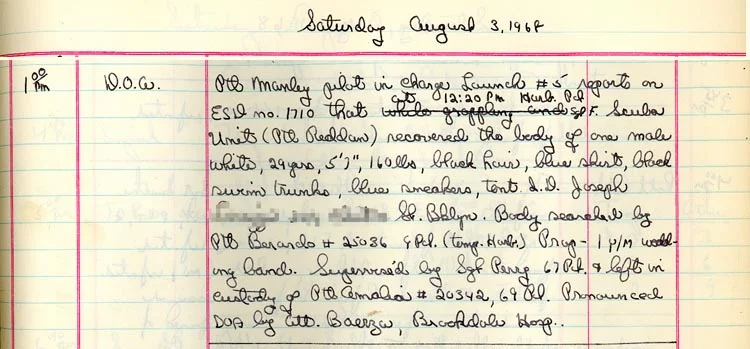 Saturday August 3, 1968
1 00 PM
D.O.A.
Ptl Manley pilot in charge Launch #5 reports on
at 12:20 PM Harb. Pct
ESD no. 1710 that while grappling and SPF. Scuba
Units (Ptl Reddan) recovered the body of one male
white, 29 yrs, 5'7", 160 lbs, black hair, blue shirt, black
swim trunks, blue sneakers, tent. I.D. Joseph
St. Bklyn. Body searched by
Ptl Berardo # 25036 9 Pct. (temp. Harb.) Prop - 1 y/m wedd-
ing band. Supervised by Sgt Perry 67 Pct. & left in
custody of Ptl # 20342, 69 Pct. Pronounced
DOA by Att. Baerga, Brookdale Hosp..